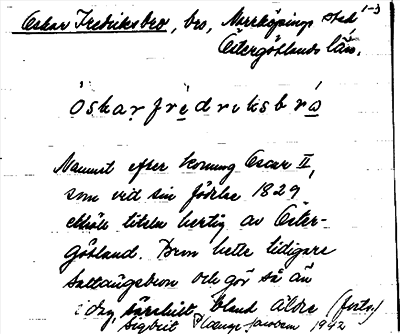 Oskar Fredriksbro, bro, Norrköpings stad 1-3
Östergötlands län.
öskarfredriksbrö
Namnet efter konung Oscar II,
som vid sin födelse 1829
erhöll titeln hertig av Öster-
götland. Bron hette tidigare
Saltängsbron och gör så än
i dag, särskilt bland äldre (forts.)
Sigbrit Plænge Jansson 1942